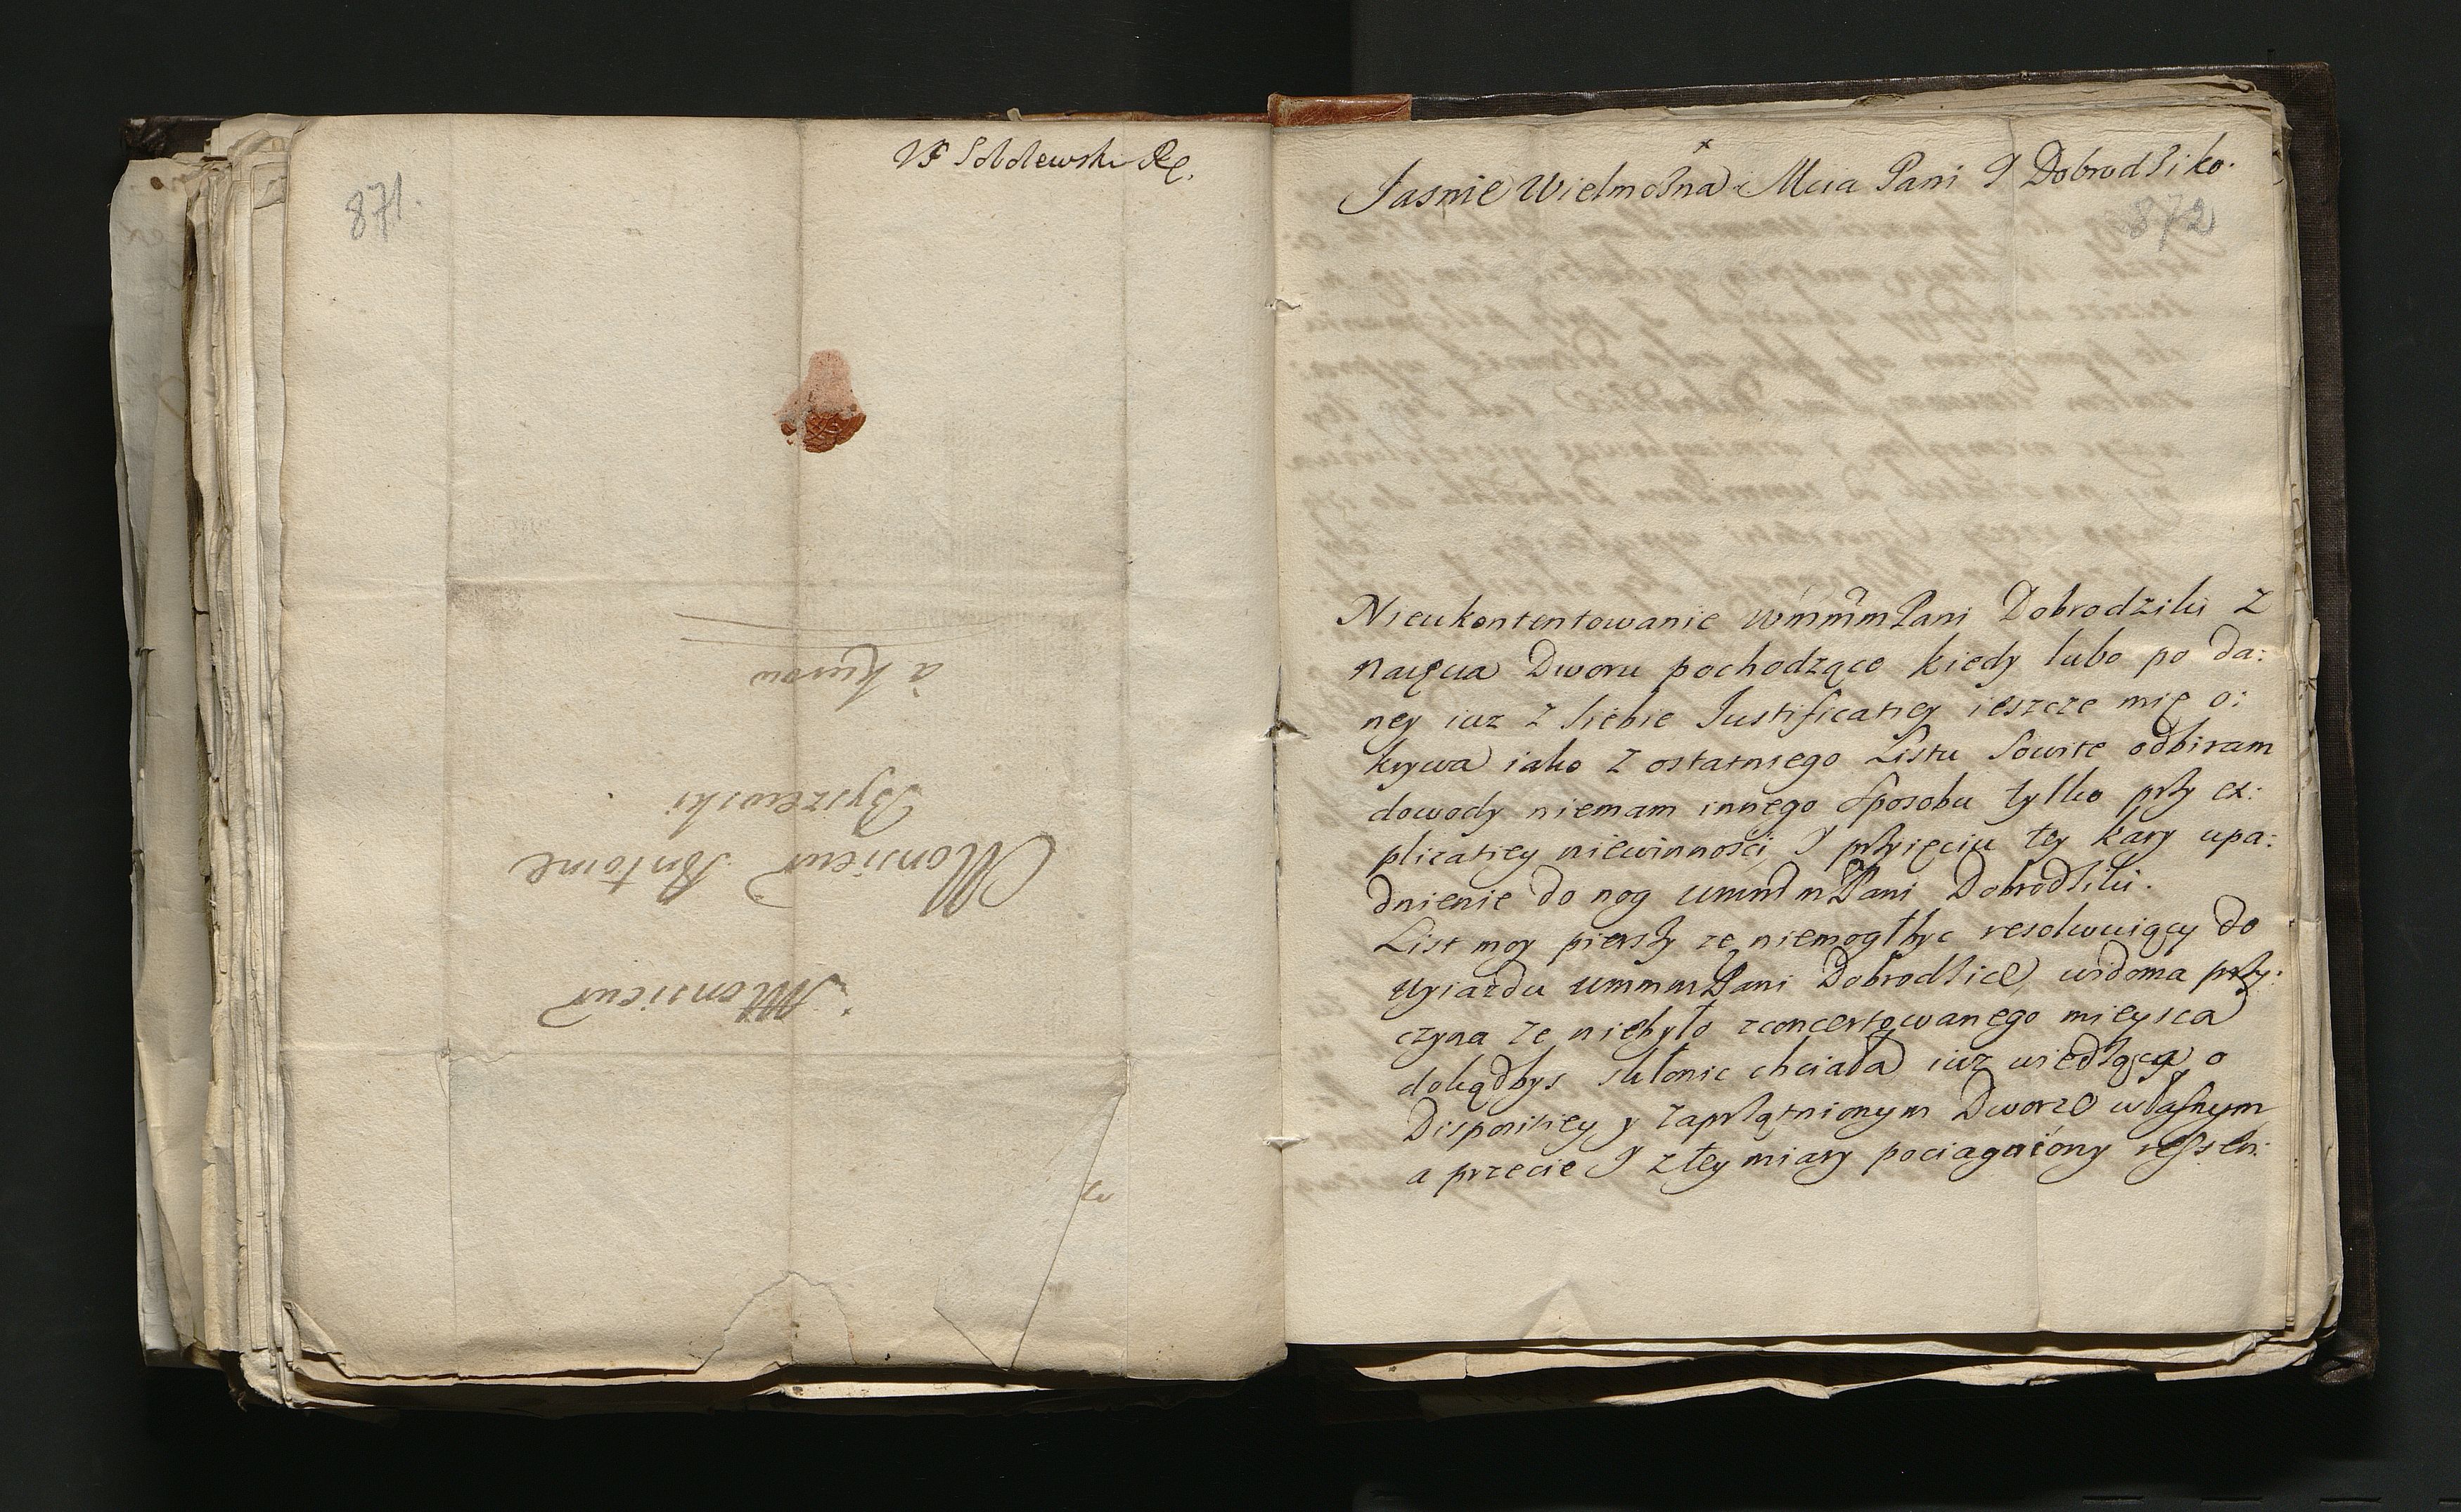 871.
Sobolewski
Monsieur
Monsieur Antoine
Byszewski
à Kurow
Jasnie Wielmożna Mcia Pani I Dobrodziko.
872
Nieukontentowanie WmmmPani Dobrodziki z
naięcia Dworu pochodzące kiedy lubo po da:
ney iuz z siebie Justificatiey ieszcze mię o:
krywa iako z ostatniego Listu Sowite odbiram
dowody niemam innego sposobu tylko przy ex:
plicatiey niewinności I przyięciu tey kary upa:
dnienie do nog WmmmPani Dobrodziki.
List moy pierszy ze niemogł byc resolwuiący do
wyiazdu WmmmPani Dobrodzice widoma przy:
czyna ze niebyło zconcertowanego mieysca
dokądbys skłonic chciała iuz wiedzącą o
Disposiciey y zaprzątnionym Dworze własnym
a przecie I z tey miary pociagniony